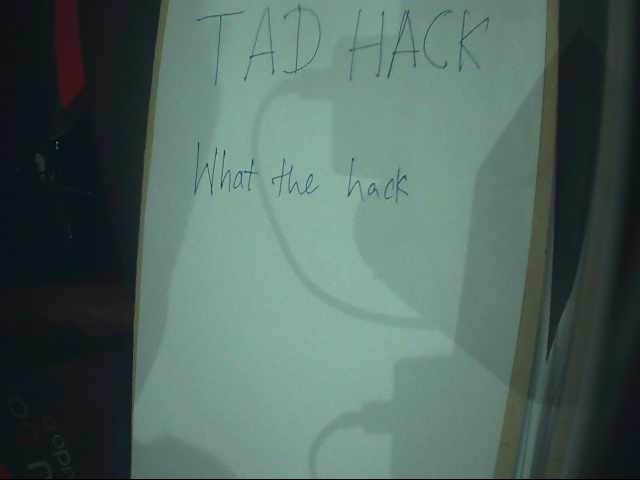 TAD HACK
What the hack